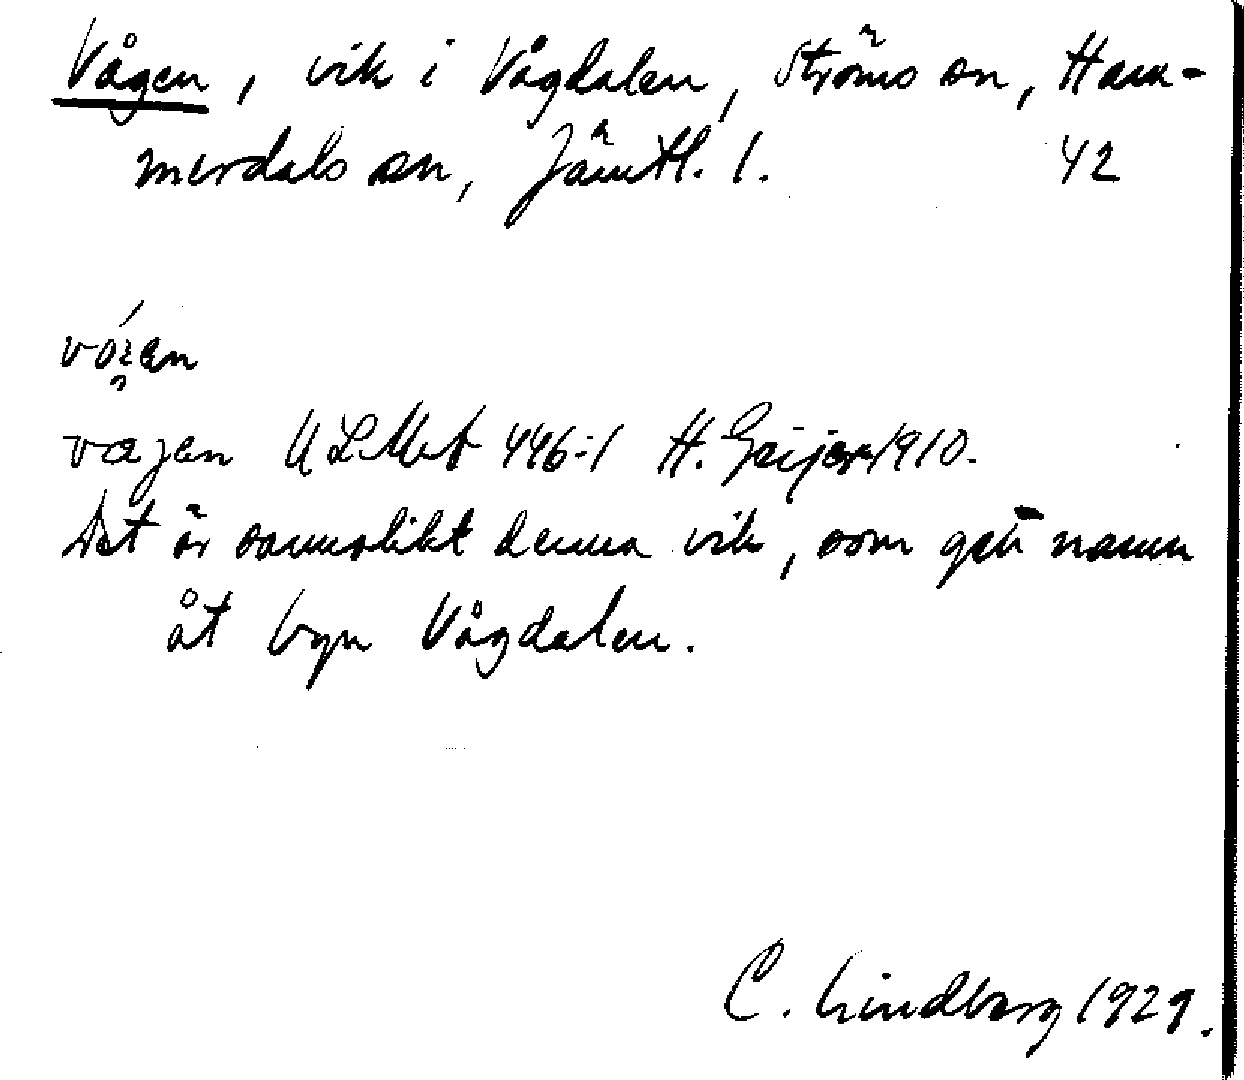 Vågen, vik i Vågdalen, Ströms sn, Ham-
merdals sn, Jämtl. l. 42
vajen ULMA 446:1 H. Geijer 1910.
Det är sannolikt denna vik, som gett namn
åt byn Vågdalen.
C. Lindberg 1929.